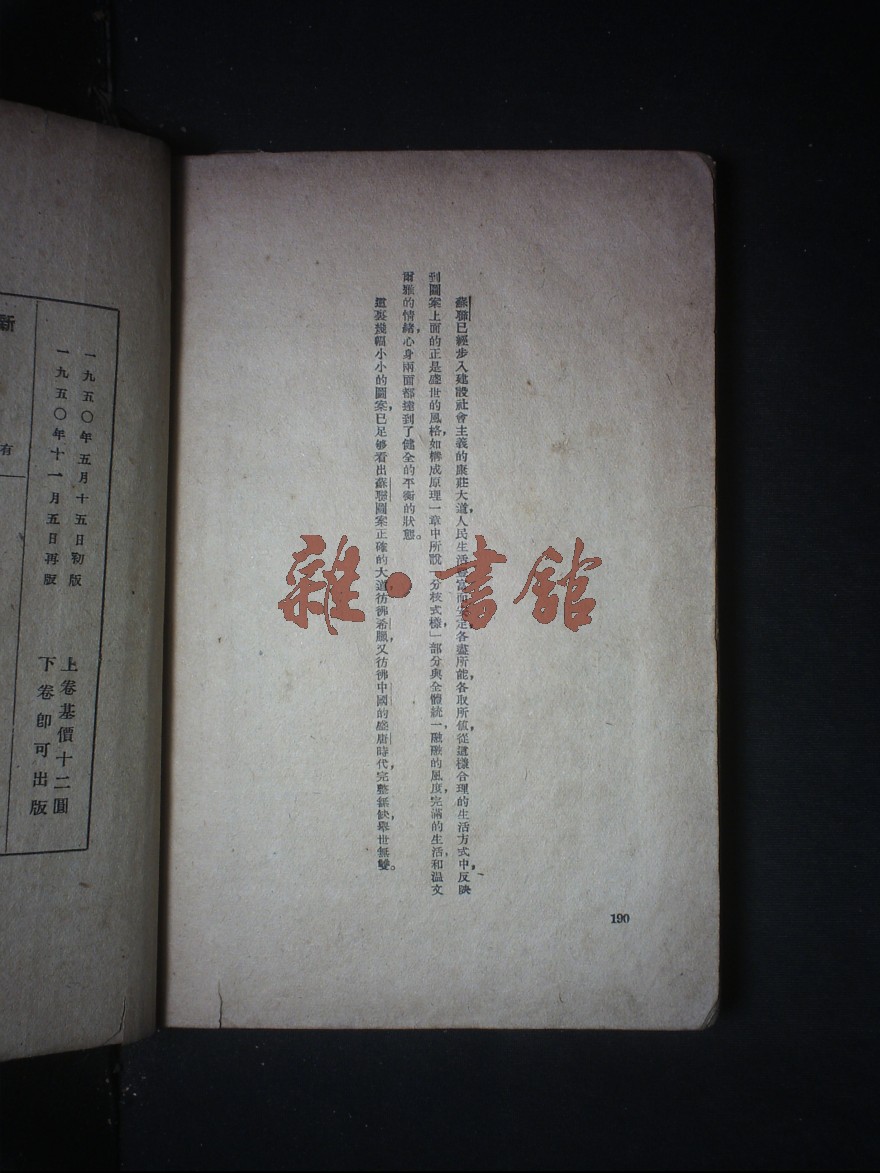 蘇聯已經步入建設社會主義的康莊大道,人民生活豐富而安定,各盡所能,各取所值,從這樣合理的生活方式中,反映
到圖案上面的正是盛世的風格,如構成原理一章中所說「分枝式樣,」部分與全體統一,融融的風度,完滿的生活,和溫文
爾雅的情緒,心身兩面都達到了健全的平衡的狀態。
這裏幾幅小小的圖案,已足够看出蘇聯圖案正確的大道,彷彿希臘,又彷彿中國的盛唐時代,完整無缺,舉世無雙。
190
雜·書館
一九五〇年五月十五日初版
一九五〇年十一月五日再版
上卷基價十二圓
下卷卽可出版
新
有